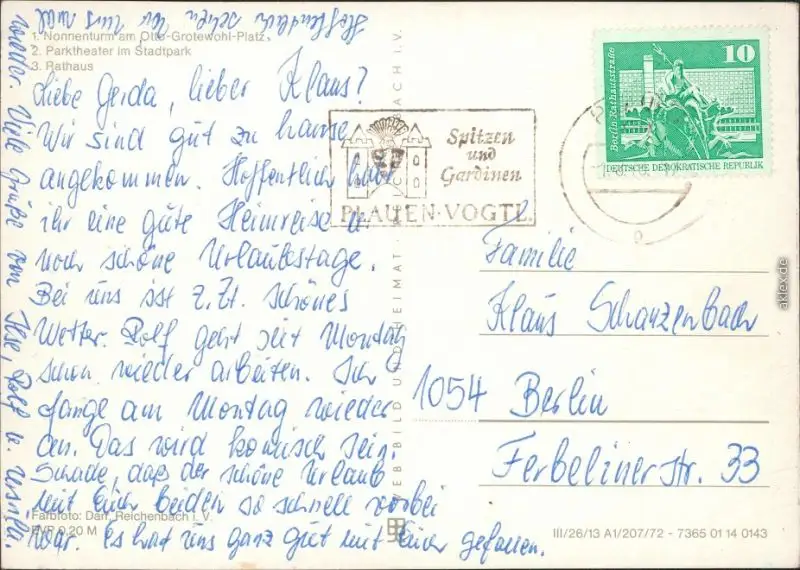 1. Nonnenturm am Otto-Grotewohl-Platz
2. Parktheater im Stadtpark
3. Rathaus
Liebe Gerda, lieber Klaus!
Wir sind gut zu hause
angekommen. Hoffentlich habt
ihr eine gute Heimreise u.
noch schöne Urlaubstage.
Bei uns ist z. Zt. schönes
Wetter. Rolf geht seit Montag
schon wieder arbeiten. Ich
fange am Montag wieder
an. Das wird komisch sein.
Schade, daß der schöne Urlaub
mit Euch beiden so schnell vorbei
war. Es hat uns ganz gut mit Euch gefallen.
Hoffentlich sehen wir uns mal
wieder. Viele Grüße von Ilse, Rolf u. Ursula.
Farbfoto: Darr, Reichenbach i. V.
EVP 0,20 M
BILD UND HEIMAT REICHENBACH I. V.
Spitzen
und
Gardinen
PLAUEN·VOGTL.
10
Berlin, Rathausstraße
DEUTSCHE DEMOKRATISCHE REPUBLIK
Familie
Klaus Schanzenbach
1054 Berlin
Ferbelinerstr. 33
III/26/13 A1/207/72 - 7365 01 14 0143
aklex.de